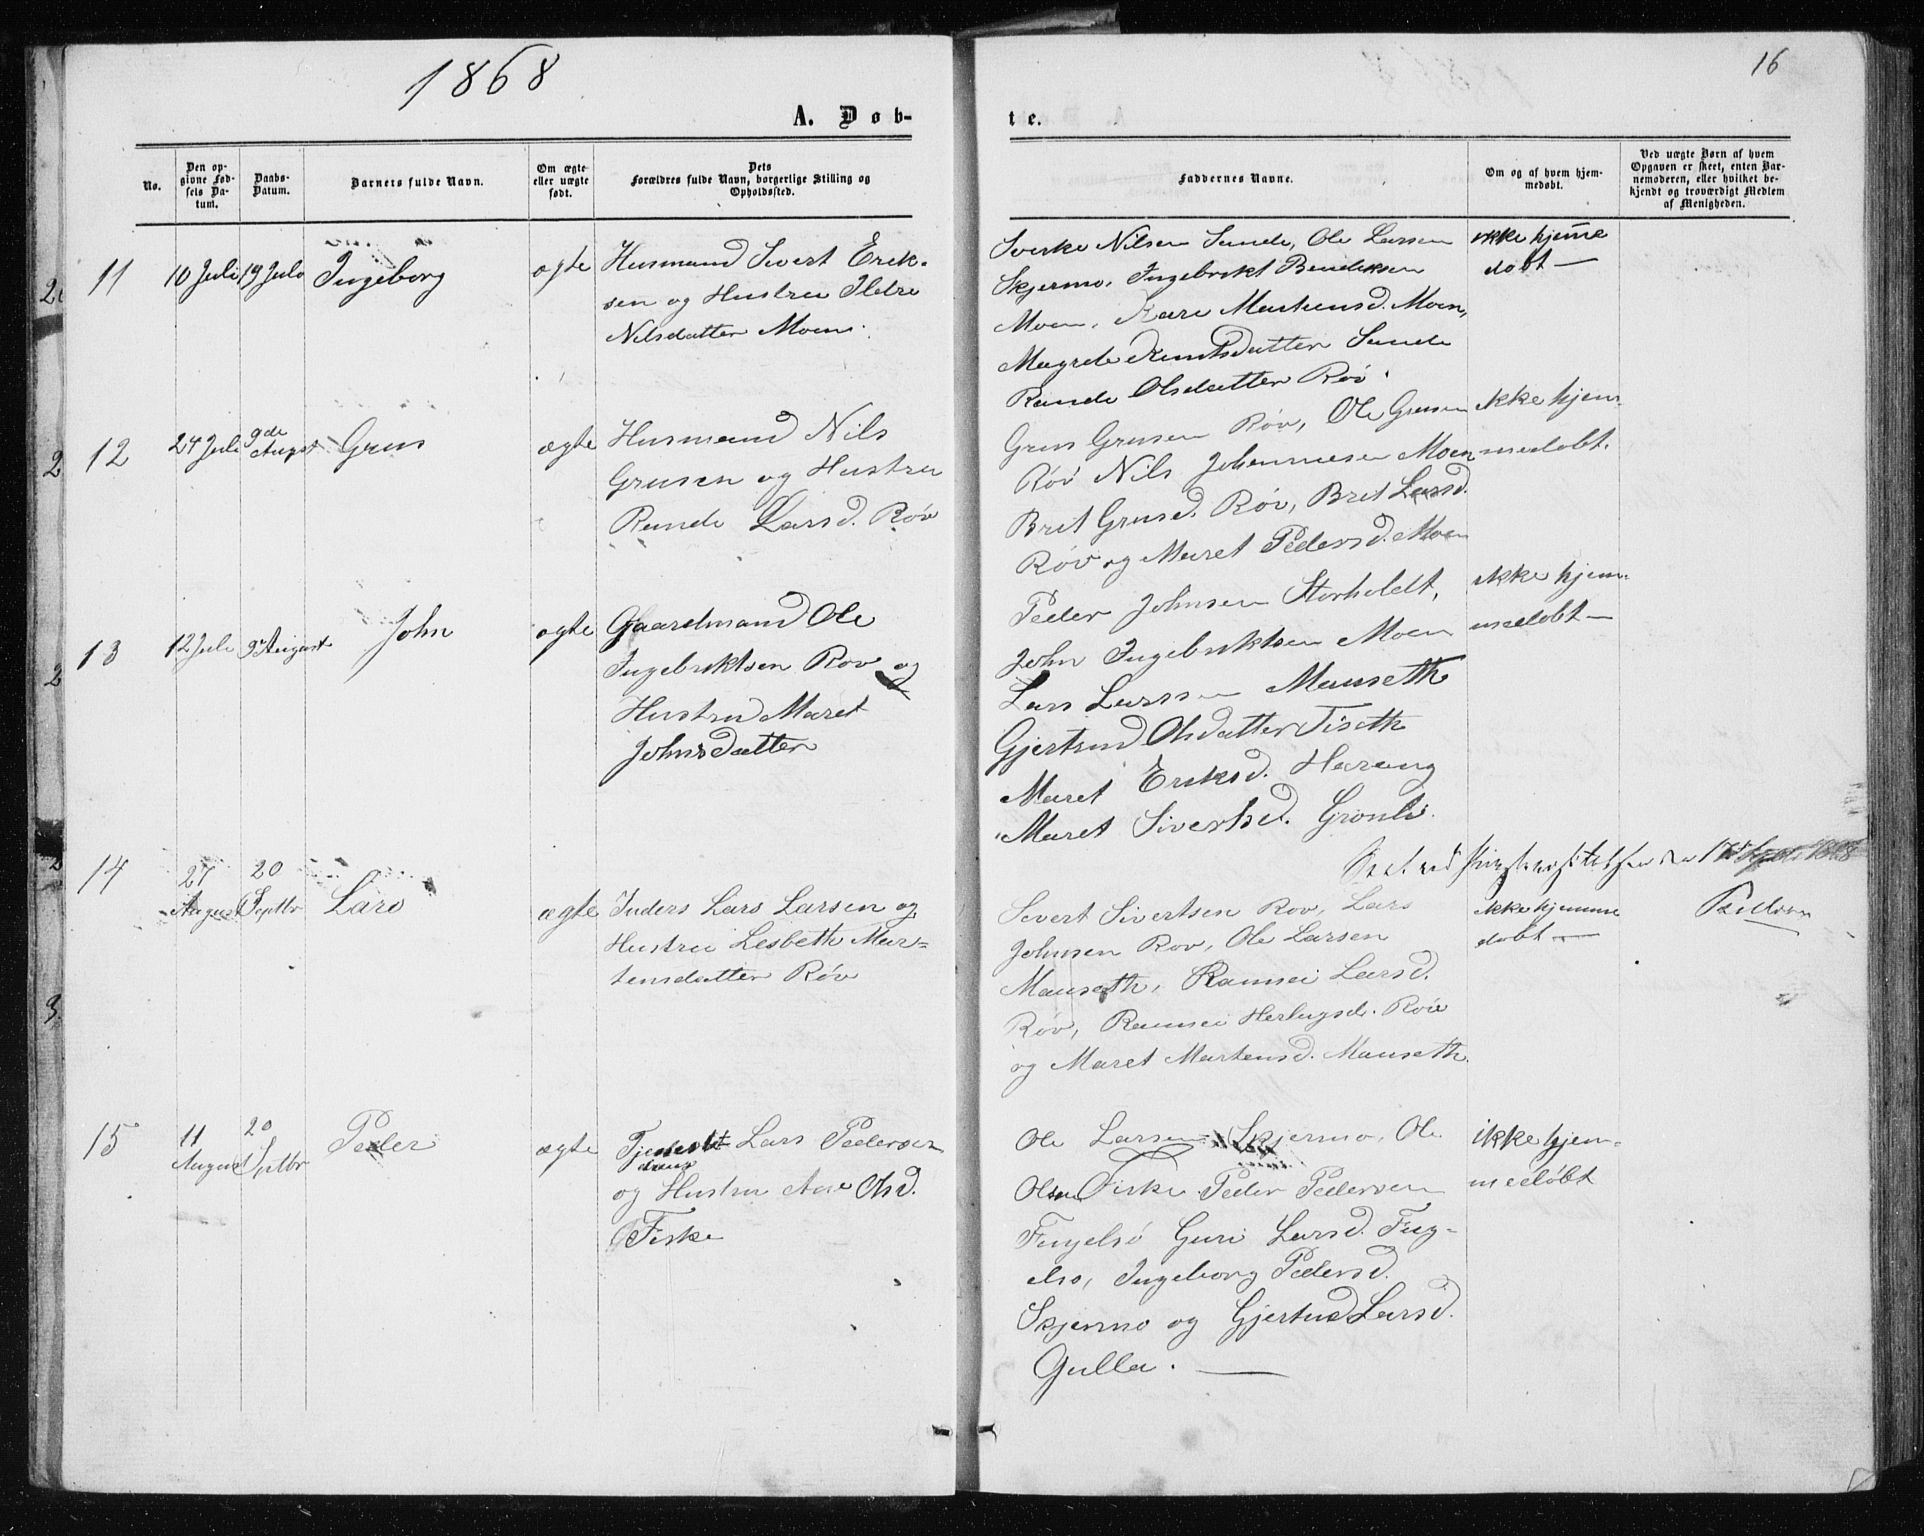 1868
16
A. Døb-
te.
No.
Den op-
givne Fød-
sels Da-
tum.
Daabs-
Datum.
Barnets fulde Navn.
Om ægte
eller uægte
født.
Dets
Forældres fulde Navn, borgerlige Stilling og
Opholdssted.
Faddernes Navne.
Om og af hvem hjem-
medøbt.
Ved uægte Børn af hvem
Opgaven er skeet, enten Bar-
nemoderen, eller hvilket be-
kjendt og troværdigt Medlem
af Menigheden.
11
10 Juli
19 Jule
Ingeborg
ægte
Husmand Sivert Erik-
sen og Hustru
Nilsdatter Moen.
Sverke Nilsen Sande, Ole Larsen
Skjermo, Ingebrikt Bendiksen
Moen, Kari Martensd. Moen,
Magrete Knutsdatter Sande
Rande Olsdatter Røv.
ikke hjeme
døbt —
12
24 Juli
9de
August
Grus
ægte
Husmand Nils
Grusen og Hustru
Rande Larsd. Røv
Grus Grusen Røv, Ole Grusen
Røv Nils Johannesen Moen
Brit Grusd. Røv, Brit Larsd.
Røv og Maret Pedersd. Moen
ikke hjem-
medøbt.
13
12 Juli
9 August
John
ægte
Gaardmand Ole
Ingebriktsen Røv og
Hustru Maret
Johnsdatter
Peder Johnsen Storholdt,
John Ingebriktsen Moen
Lars Larssen Mauseth
Gjertrud Olsdatter Tiseth
Maret Eriksd. Harang
Maret Sivertsd. Grønli.
ikke hjem-
medøbt —
14
27
August
20
Septbr
Lars
ægte
Inders Lars Larsen og
Hustru Lesbeth Mar-
tensdatter Røv
Seet ved
1868
Sivert Sivertsen Rov, Lars
Johnsen Rov, Ole Larsen
Mauseth, Rannei Larsd.
Røv, Rannei Herlugsd. Røv
og Maret Martensd. Mauseth.
ikke hjemme
døbt —
15
11
August
20
Septbr
Peder
ægte
Lars Pedersen
og Hustru Ane Olsd.
Fiske
Ole Larsen Skjermo, Ole
Olsen Fiske Peder Pedersen
Fugelsø Guri Larsd. Fug-
elsø, Ingeborg Pedersd.
Skjermo og Gjertrud Larsd.
Gulla. —
ikke hjem-
medøbt